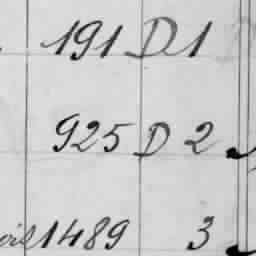 191 D 1
925 D 2
1489 3